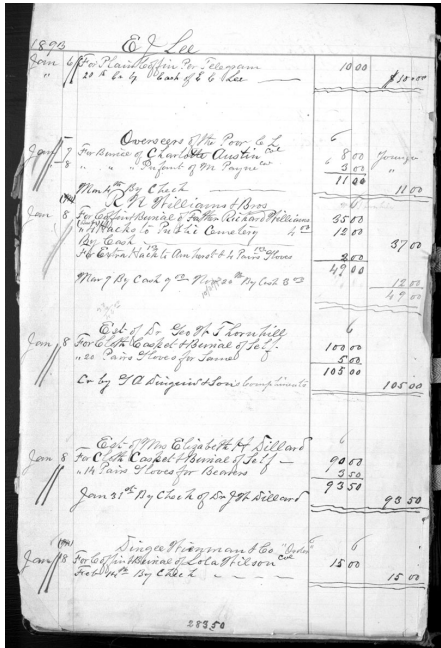 1893 E J Lee
Jan 6 For Plain Coffin Per Telegram 10 00
" 20th By Cash of E C Lee $10.00
Overseers of the Poor C L 6
Jan 7 For Burial of Charlotte Austin Col 8 00
" 8 " " " Infant of M Payne Col 3 00 "
11 00
Mar 4th By Check 11 00
R N Williams & Bros
Jan 8 For Coffin & Burial of Father Richard Williams 35 00
" 4 Hacks to Public Cemetery 4 00 12 00
By Cash 37 00
For Extra Hack to Amherst & 4 Pairs Gloves 2 00
49 00
Mar 9 By Cash 9 00 Nov 20th By Cash 3 00 12 00
49 00
Est of Dr Geo W Thornhill 6
Jan 8 For Cloth Casket & Burial of Self 100 00
" 20 Pairs Gloves for Same 5 00
105 00
Cr by & Sons Compliments 105 00
Est of Mrs Elizabeth H Dillard 6
Jan 8 For Cloth Casket & Burial of Self 90 00
" 14 Pairs Gloves for Bearers 3 50
93 50
Jan 31st By Check of Dr J W Dillard 93 50
& Co "Order" 6
Jan 8 For Coffin & Burial of Lola Wilson Col 15 00
Feb 14th By Check 15 00
28350